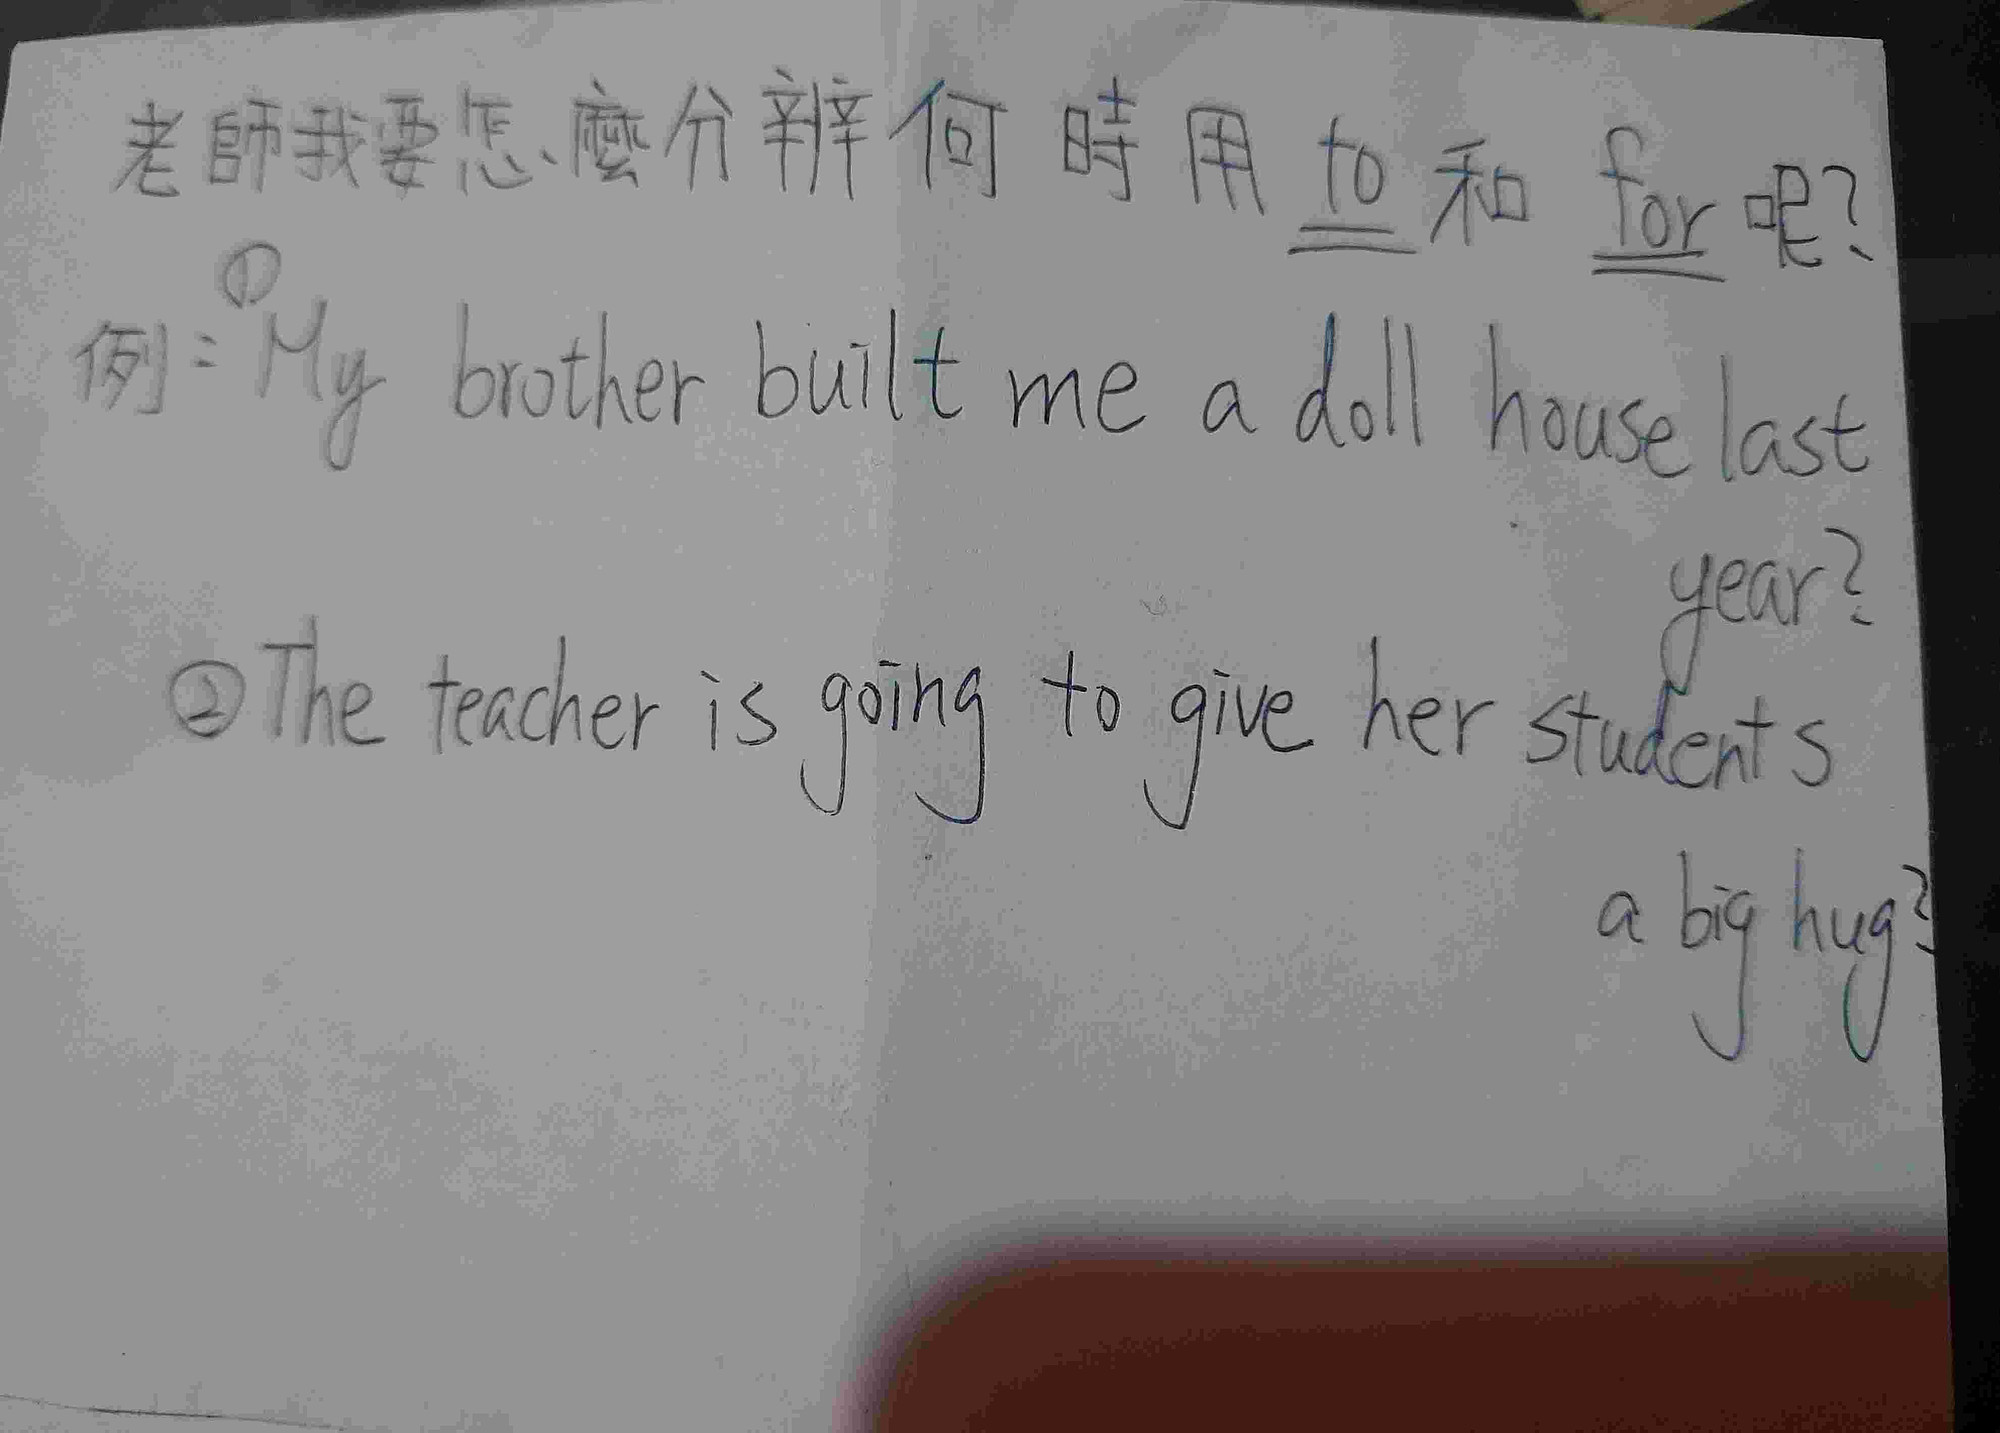 老師我要怎麼分辨何時用 to 和 for 呢?
例:①My brother built me a doll house last
year?
②The teacher is going to give her students
a big hug?